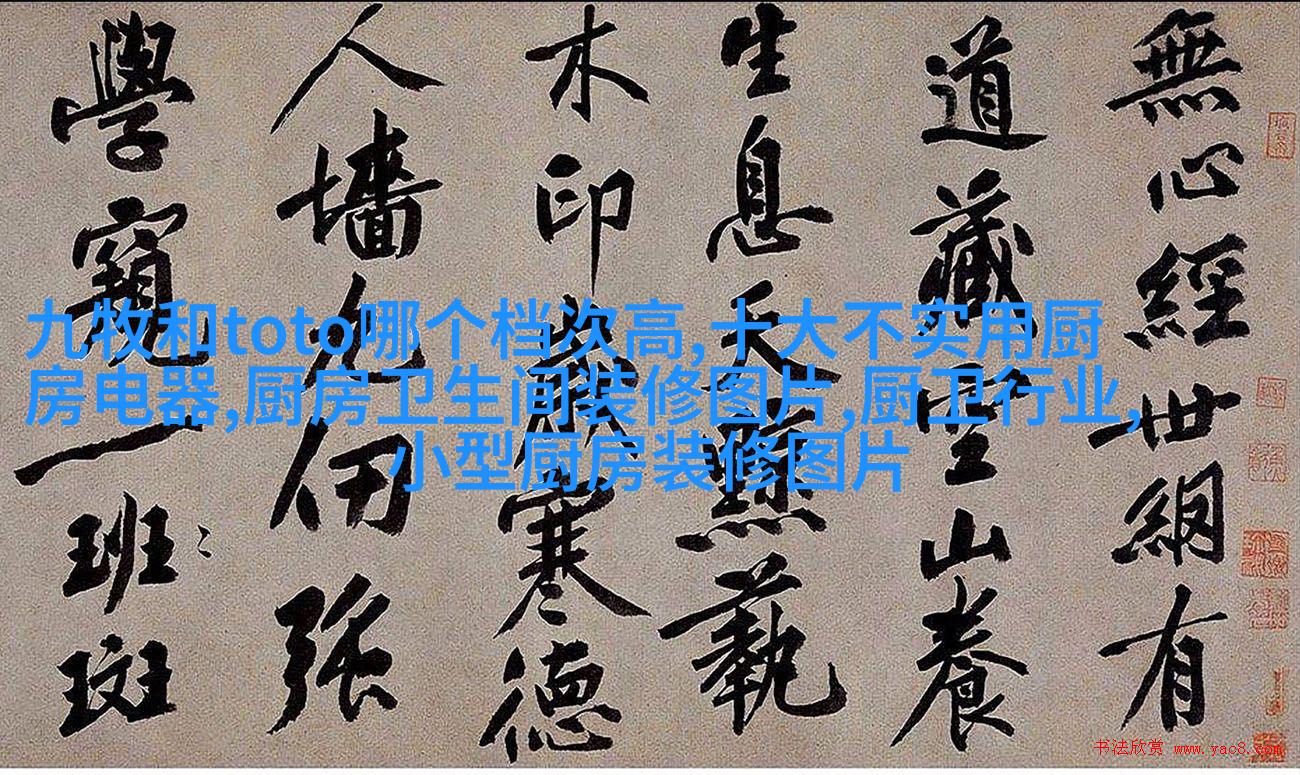 九牧和toto哪个档次高,十大不实用厨
房电器,厨房卫生间装修图片,厨卫行业,
小型厨房装修图片
無心經世網有
道藏山養
生息天黥藝
木印歲寒德
人牆九仞強
學窺一班斑
书法欣赏 www.yac8.com